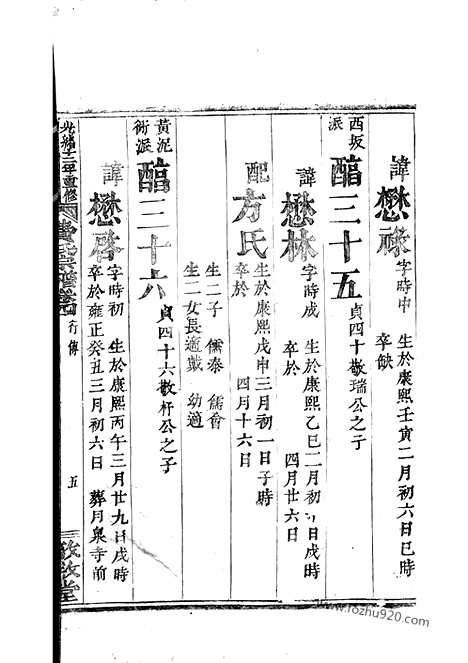 諱懋祿字時中 生於康熙壬寅二月初六日巳時
卒缺
西坂派 醕三十五 貞四十敬瑞公之子
諱懋林字時成 生於康熙乙巳二月初 日戌時
卒於 四月廿六日
配方氏生於康熙戊申三月初一日子時
卒於 四月十六日
生二子 儒泰 儒會
生二女長適戴 幼適
黃泥街派 醕三十六 貞四十六敬杆公之子
諱懋啓字時初 生於康熙丙午三月廿九日戌時
卒於雍正癸丑三月初六日 葬月泉寺前
光緒十二年重修 行傳 五 敦敘堂
www.fozhu920.com